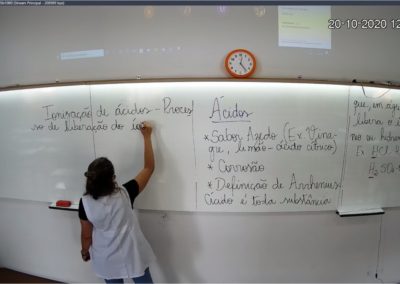 20-10-2020 12
Ionização de ácidos - Proces
so de liberação do
Ácidos
* Sabor Azedo (Ex: Vina-
gre, limão - ácido cítrico)
* Corrosão
* Definição de Arrhenius
Ácido é toda substância
que, em água
libera o
no ou hidro
Ex HCl
H₂SO₄